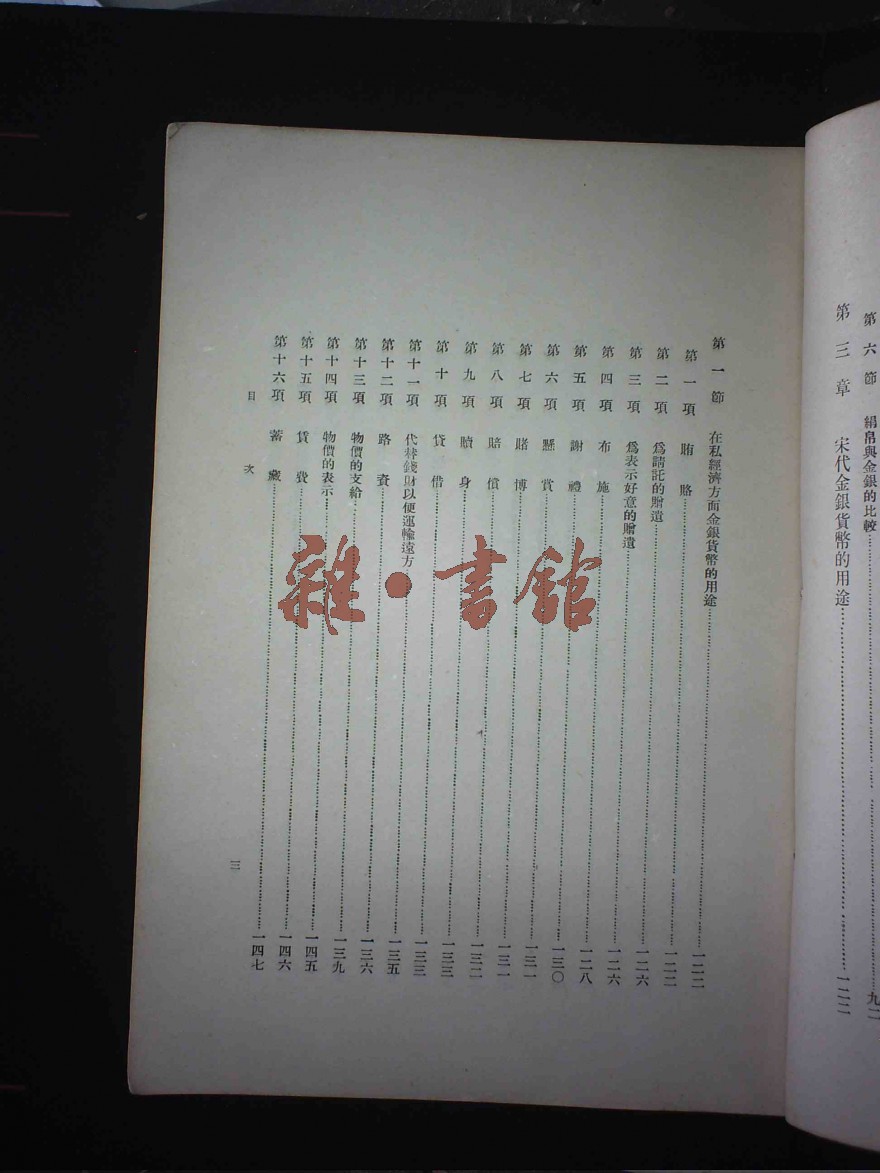 第六節 絹帛與金銀的比較……九二
第三章 宋代金銀貨幣的用途……一二二
第一節 在私經濟方面金銀貨幣的用途……一二二
第一項 賄賂……一二二
第二項 爲請託的贈遺……一二六
第三項 爲表示好意的贈遺……一二六
第四項 布施……一二八
第五項 謝禮……一三〇
第六項 懸賞……一三一
第七項 賭博……一三一
第八項 賠償……一三二
第九項 贖身……一三三
第十項 貸借……一三三
第十一項 代替錢財以便運輸遠方……一三五
第十二項 路費……一三六
第十三項 物價的支給……一三九
第十四項 物價的表示……一四五
第十五項 賃費……一四六
第十六項 蓄藏……一四七
目次
三
雜·書館